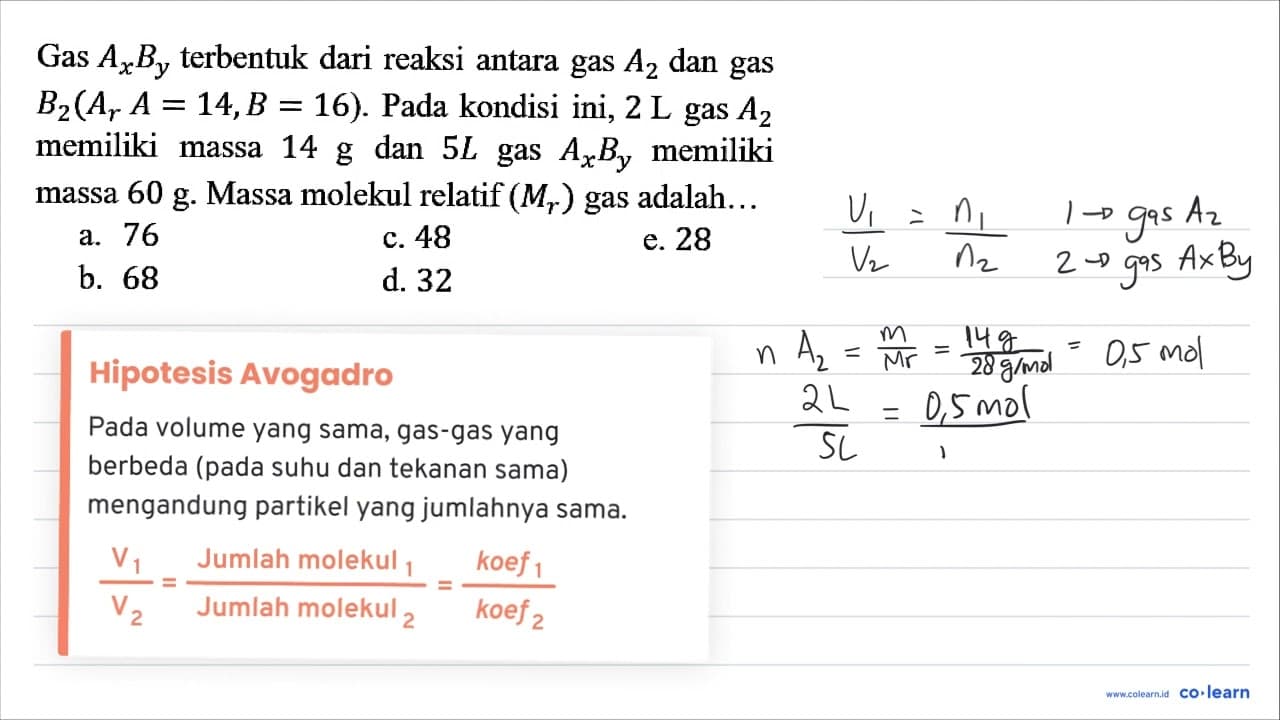 Gas AₓBᵧ terbentuk dari reaksi antara gas A₂ dan gas
B₂(Aᵣ A = 14, B = 16). Pada kondisi ini, 2 L gas A₂
memiliki massa 14 g dan 5L gas AₓBᵧ memiliki
massa 60 g. Massa molekul relatif (Mᵣ) gas adalah...
a. 76 c. 48 e. 28
b. 68 d. 32
V₁/V₂ = n₁/n₂
1 → gas A₂
2 → gas AxBy
n A₂ = m/Mr = 14 g/28 g/mol = 0,5 mol
2L/5L = 0,5 mol/
Hipotesis Avogadro
Pada volume yang sama, gas-gas yang
berbeda (pada suhu dan tekanan sama)
mengandung partikel yang jumlahnya sama.
V₁/V₂ = Jumlah molekul ₁/Jumlah molekul ₂ = koef ₁/koef ₂
www.colearn.id co·learn